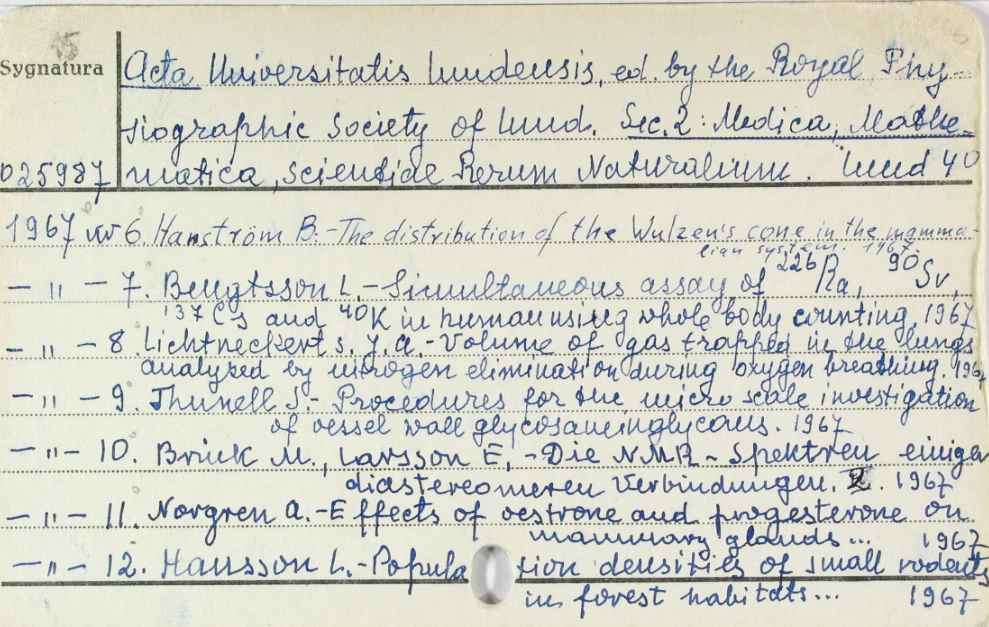 15
Sygnatura Acta Universitatis Lundensis, ed. by the Royal Phy-
siographic Society of Lund. Sec. 2: Medica, Mathe-
025987 matica, Scientiae Rerum Naturalium. Lund 40
1967 nr 6. Hanström B. - The distribution of the Wulzen's cone in the mamma-
lian system. 1967.
— " — 7. Bengtsson L. - Simultaneous assay of 226 Ra, 90 Sv,
137 Cs and 40K in human using whole body counting. 1967
— " — 8. Lichtneckert S. J. A. - Volume of gas trapped in the lungs
analyzed by nitrogen elimination during oxygen breathing. 1967
— " — 9. Thunell S. - Procedures for the micro scale investigation
of vessel wall glycosaminglycans. 1967
— " — 10. Brink M., Larsson E. - Die NMR - Spektren einiger
diastereomeren Verbindungen. 1967
— " — 11. Norgren A. - Effects of oestrone and progesterone on
mammary glands... 1967
— " — 12. Hansson L. - Population densities of small rodents
in forest habitats... 1967